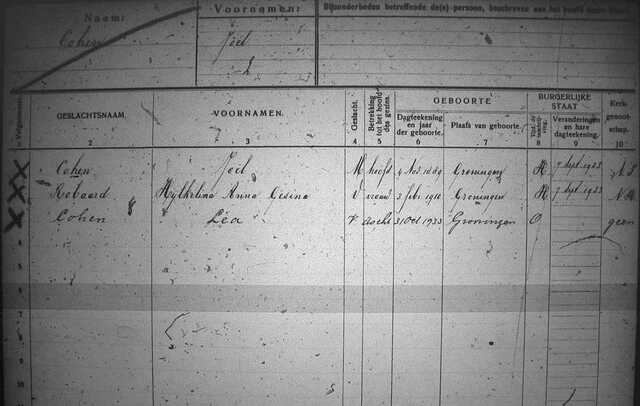 Naam: Voornamen: Bijzonderheden betreffende de(n) persoon, beschreven aan het hoofd
Cohen Joël
GEBOORTE BURGERLIJKE STAAT Kerk-genoot-schap.
Volgnummer. GESLACHTSNAAM. VOORNAMEN. Geslacht. Betrekking tot het hoofd des gezins. Dagteekening en jaar der geboorte. Plaats van geboorte. Veranderingen en hare dagteekening.
2 3 4 5 6 7 8 9 10
Cohen Joël M hoofd 4 Groningen H 7 Sept. 1933 N.I.
Anna Gesina V vrouw 3 Febr 1910 Groningen H 7 Sept. 1933
Cohen Lea V docht 31 Oct 1933 Groningen O geen
4
5
6
7
8
9
10